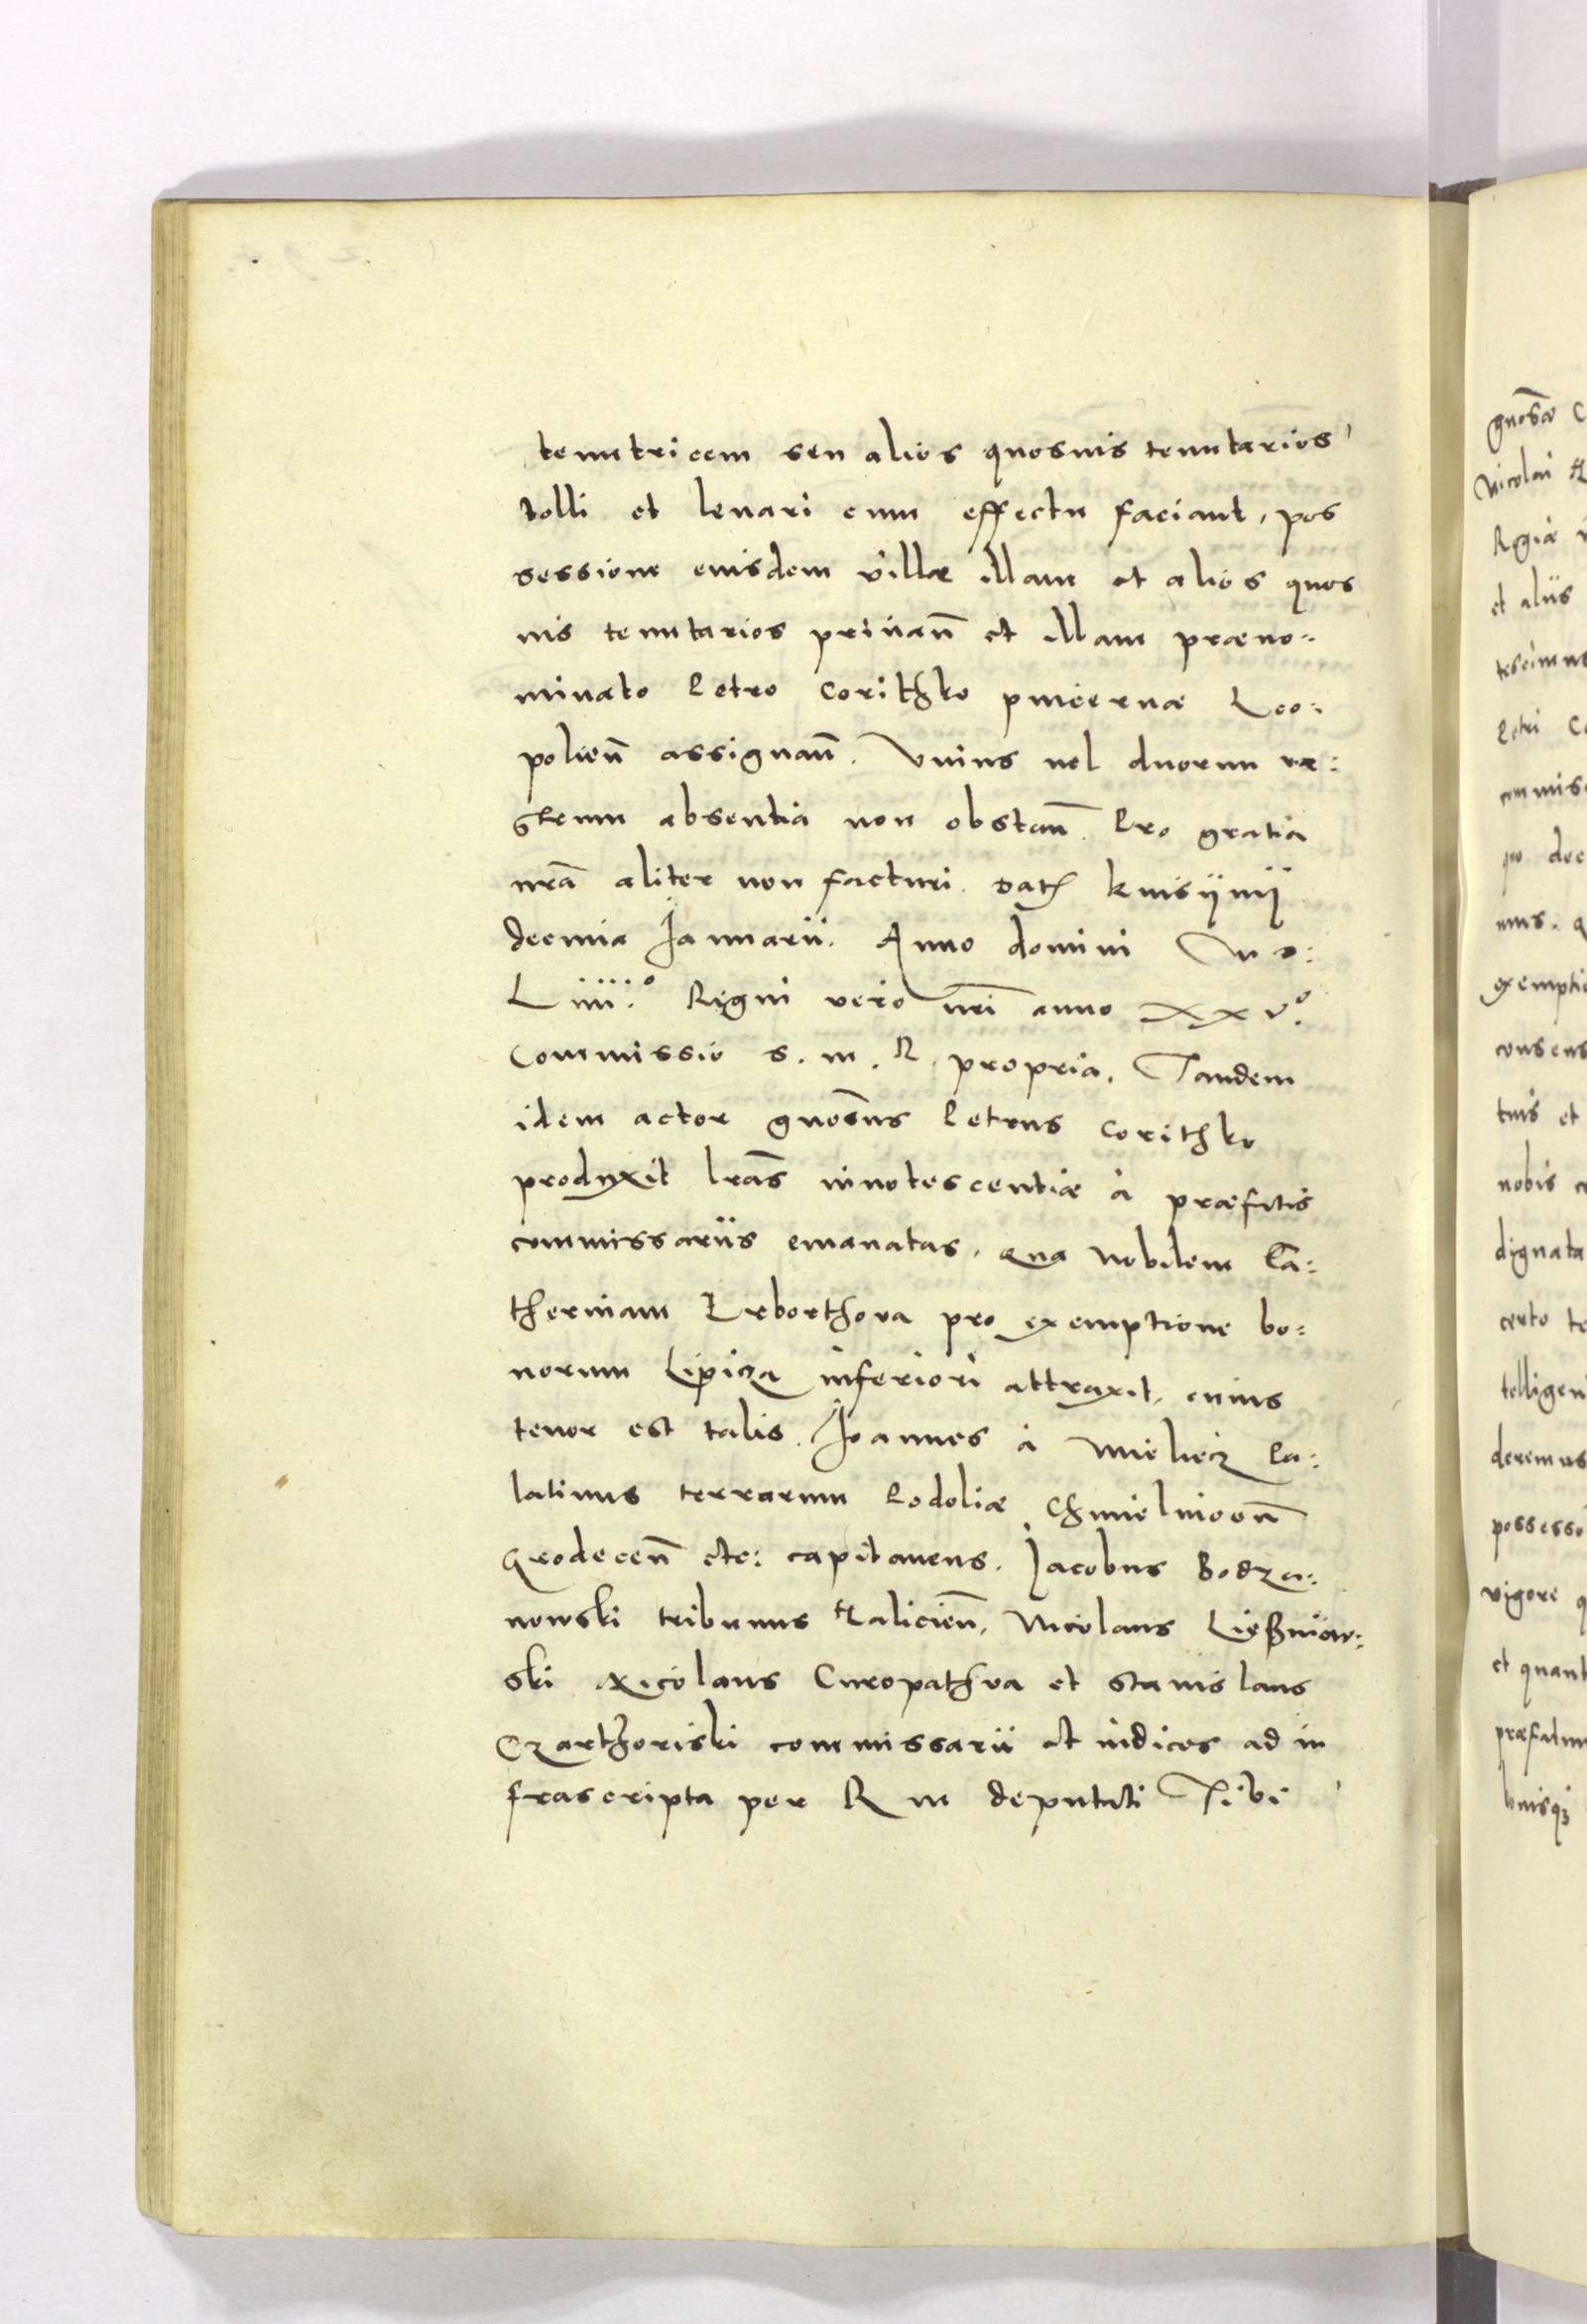 tenutricem seu alios quosuis tenutarios
tolli et leuari cum effectu faciant, pos
sessione eiusdem villæ illam et alios quos
uis tenutarios priuan̄ et illam præno:
minato Petro Corithko pincernæ Leo:
polien̄ assignan̄. Vnius uel duorum ve:
strum absentia non obstan̄. Pro gratia
nrā aliter non facturi. Dat Knisÿnÿ
decima Januarii. Anno domini M D:
Liiii.º Regni vero nrī anno XXV.º
Commissio S. M. R. propria. Tandem
idem actor gnosūs Petrus Corithko
produxit lrās innotescentiæ à præfatis
commissariis emanatas, qua Nobilem Ca:
therinam Erborthova pro exemptione bo:
norum Lipicza inferiori attraxit, cuius
tenor est talis. Joannes à Mielecz Pa:
latinus terrarum Podoliæ, Chmielnicen̄
Grodecen̄ etc: capitaneus. Jacobus Bodza:
nowski tribunus Halicien̄, Nicolaus Ließniow:
ski Nicolaus Curopathva et Stanislaus
Czarthoriski commissarii et iudices ad in
frascripta per R M deputati Tibi
gnosæ C
Nicolai H
Regiæ
et aliis
tescimus
Petri Co
commis
exemptio
consens
tuis et
nobis
dignata
certo te
telligen
deremus
possesso
vigore q
et quant
præfatum